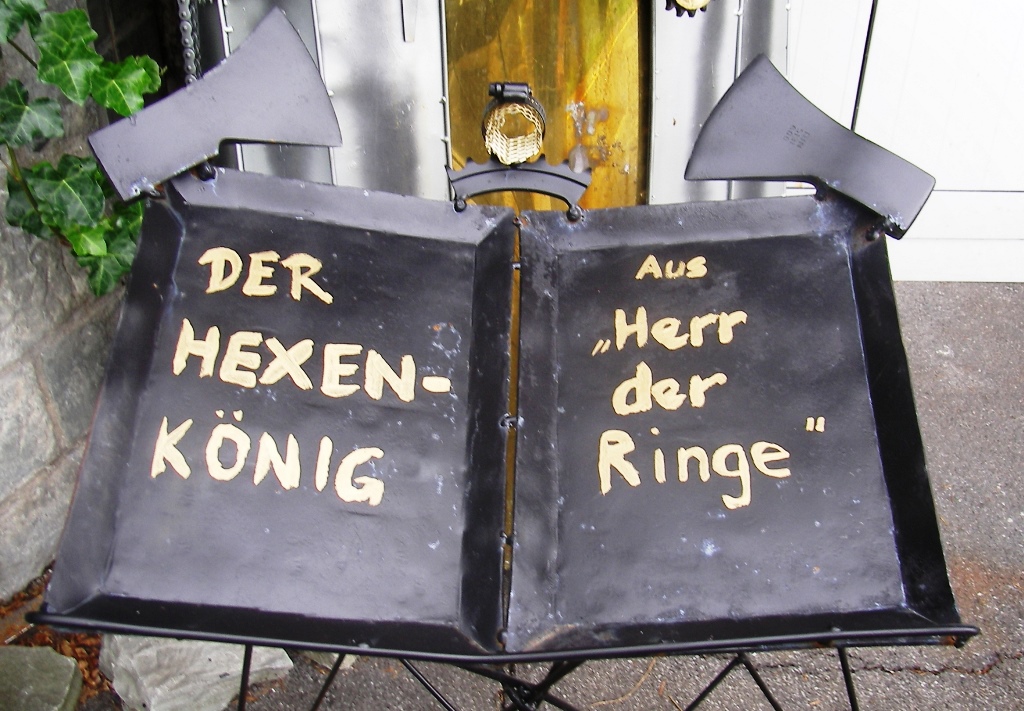 DER
HEXEN-
KÖNIG
Aus
„Herr
der
Ringe“